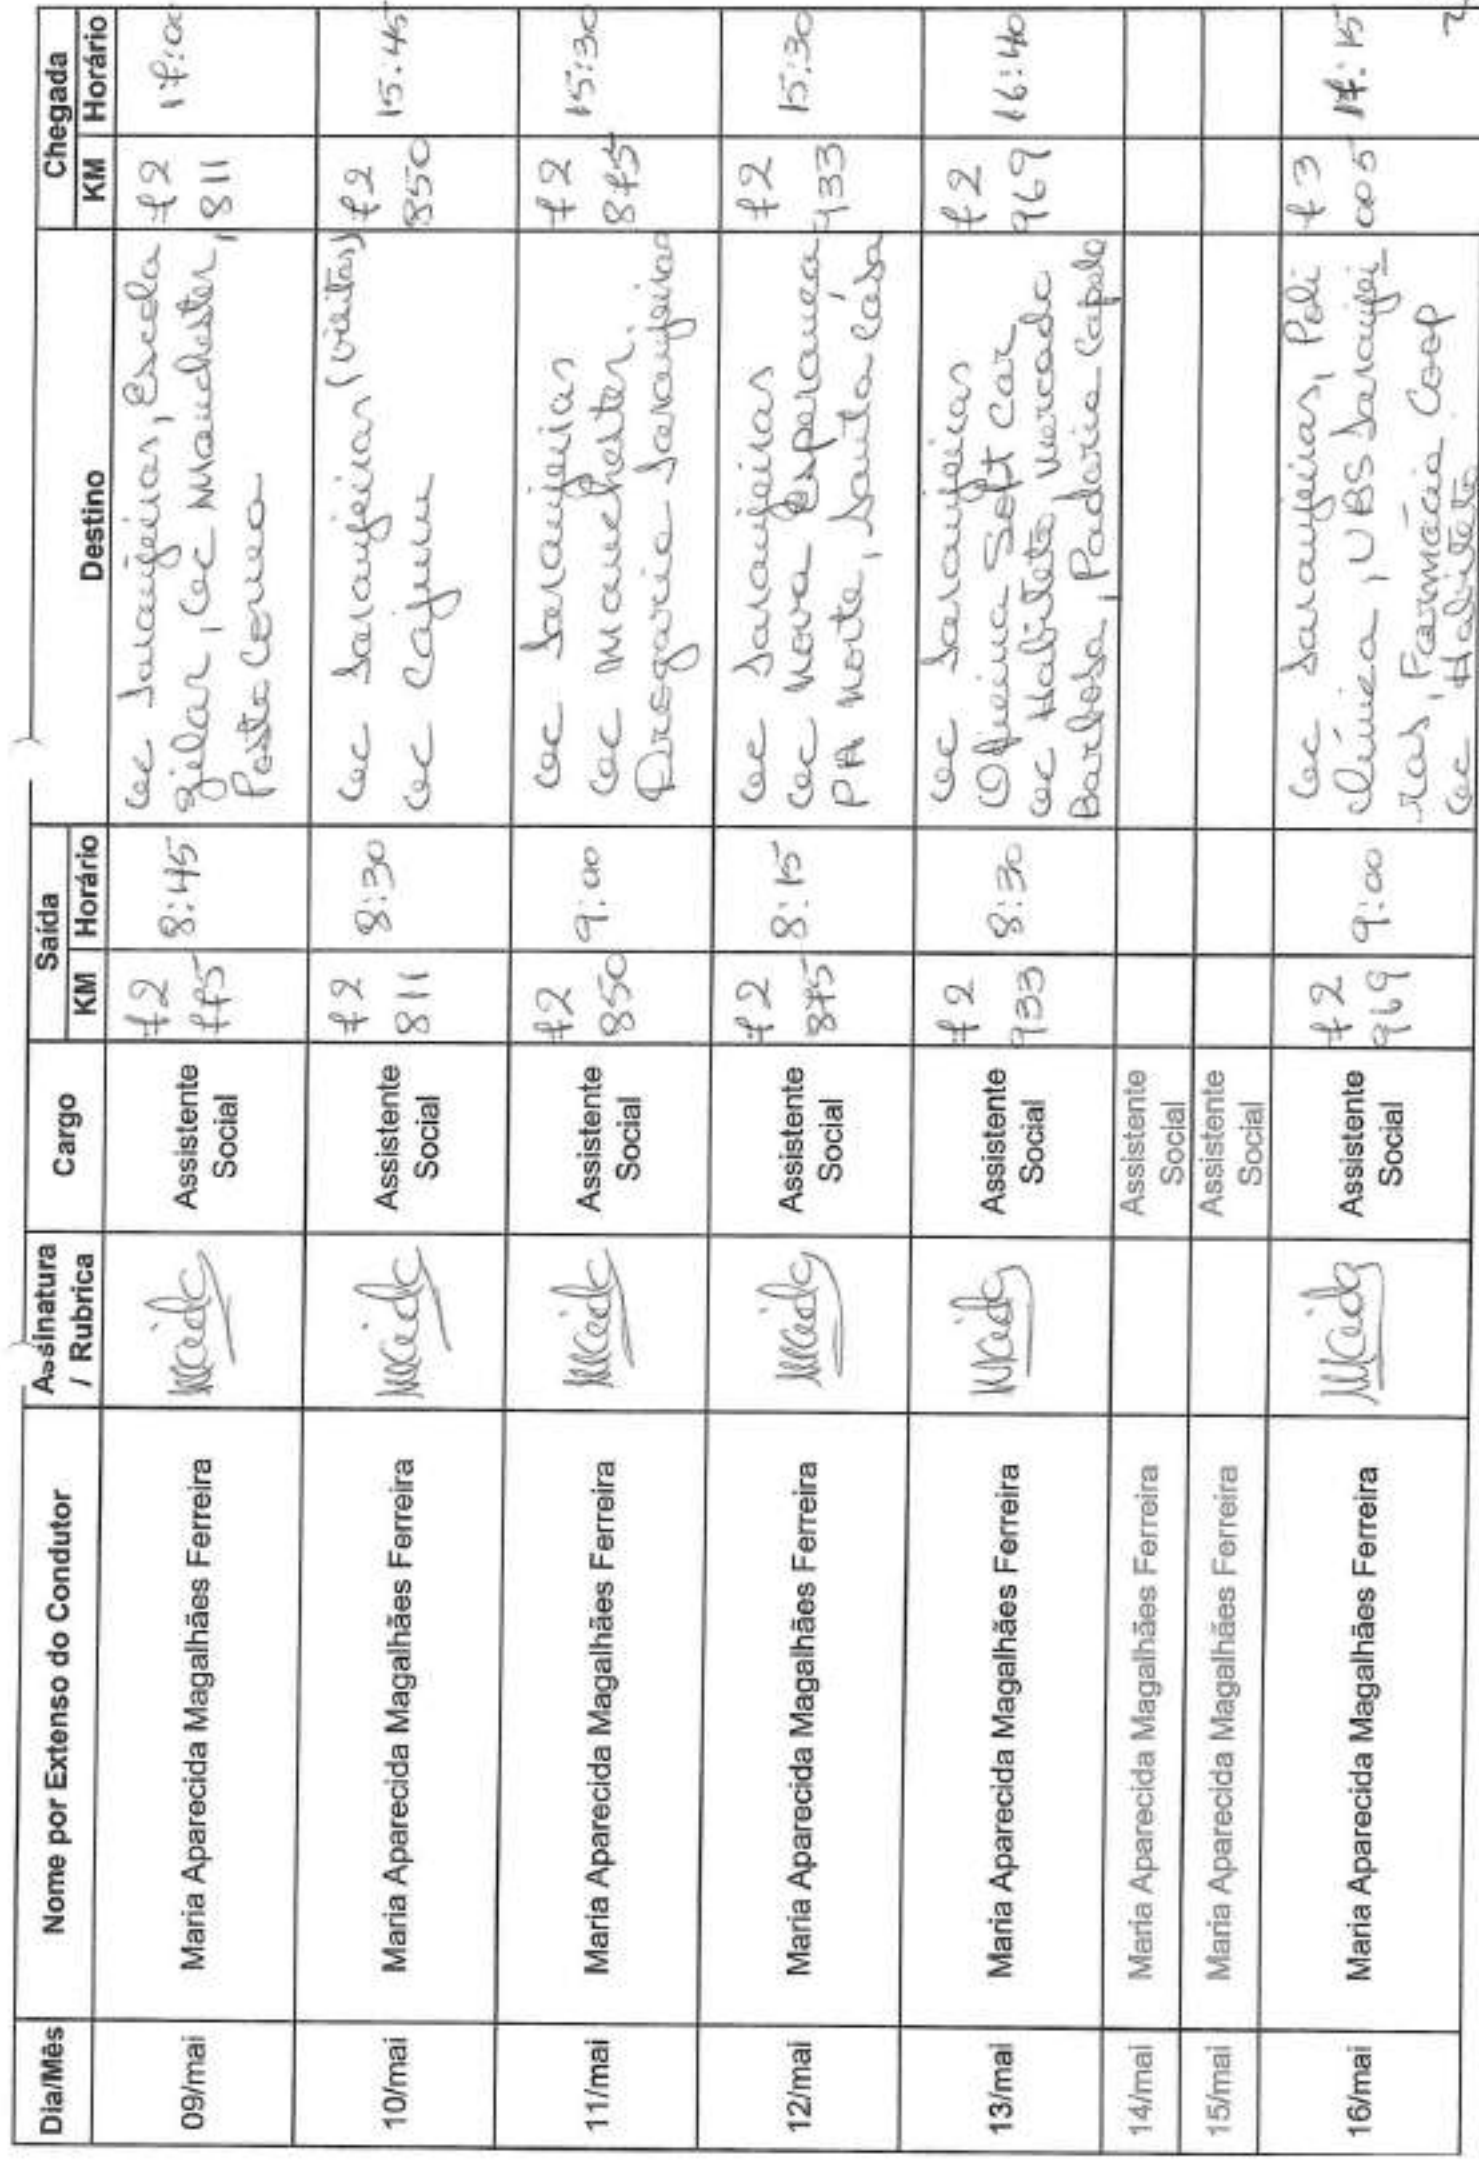 Dia/Mês Nome por Extenso do Condutor Assinatura / Rubrica Cargo Saída Destino Chegada
KM Horário KM Horário
09/mai Maria Aparecida Magalhães Ferreira Assistente Social 72 775 8:45 72 811 17:00
Cac Laranjeiras, Escola
Zilar, Cac Manchester,
Posto Correa
10/mai Maria Aparecida Magalhães Ferreira Assistente Social 72 811 8:30 72 850 15:45
Cac Laranjeiras (visitas)
Cac Cajuru
11/mai Maria Aparecida Magalhães Ferreira Assistente Social 72 850 9:00 72 875 15:30
Cac Laranjeiras
Cac Manchester.
Drogaria Laranjeiras
12/mai Maria Aparecida Magalhães Ferreira Assistente Social 72 875 8:15 72 933 15:30
Cac Laranjeiras
Cac Nova Esperança
PA Norte, Santa Casa
13/mai Maria Aparecida Magalhães Ferreira Assistente Social 72 933 8:30 72 969 16:40
Cac Laranjeiras
Oficina Soft Car
Cac Habiteto, mercado
Barbosa, Padaria Capela
14/mai Maria Aparecida Magalhães Ferreira Assistente Social
15/mai Maria Aparecida Magalhães Ferreira Assistente Social
16/mai Maria Aparecida Magalhães Ferreira Assistente Social 72 969 9:00 73 005 17:15
Cac Laranjeiras, Poli
clínica, UBS Laranjei-
ras, Farmácia Coop
Cac Habiteto